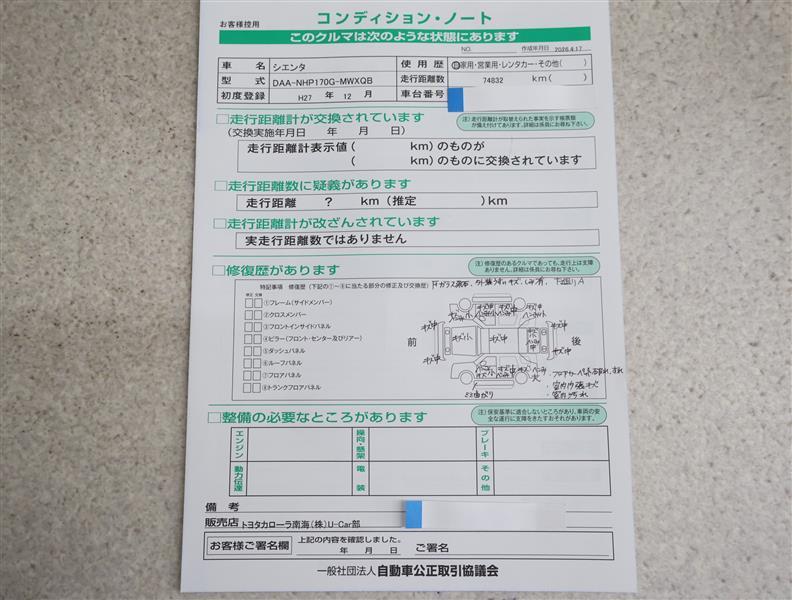 お客様控用
コンディション・ノート
このクルマは次のような状態にあります
NO. 作成年月日 2026.4.17
車名 シエンタ 使用歴 自家用・営業用・レンタカー・その他( )
型式 DAA-NHP170G-MWXQB 走行距離数 74832 km( )
初度登録 H27 年 12 月 車台番号
□走行距離計が交換されています
(交換実施年月日 年 月 日)
注)走行距離計が取替えられた事実を示す帳票類
が備え付けてあります。詳細は係員にお尋ね下さい。
走行距離計表示値( km)のものが
( km)のものに交換されています
□走行距離数に疑義があります
走行距離 ? km(推定 )km
□走行距離計が改ざんされています
実走行距離数ではありません
□修復歴があります
注)修復歴のあるクルマであっても、走行上は支障
ありません。詳細は係員にお尋ね下さい。
特記事項 修復歴(下記の①~⑧に当たる部分の修正及び交換歴) Fガラス飛石、外装うすいキズ、しみ有、下廻りA
修正 交換
①フレーム(サイドメンバー)
②クロスメンバー
③フロントインサイドパネル
④ピラー(フロント・センター及びリアー)
⑤ダッシュパネル
⑥ルーフパネル
⑦フロアパネル
⑧トランクフロアパネル
前
後
キズ中
キズ小
キズ中
キズ中
キズ中
キズ中
・室内内張キズ
・室内汚れ
□整備の必要なところがあります
注)保安基準に適合しないところがあり、車両の安
全な運行に支障をきたすおそれがあります。
エンジン 操向・懸架 ブレーキ
動力伝達 電装 その他
備考
販売店 トヨタカローラ南海(株)U-Car部
お客様ご署名欄 上記の内容を確認しました。
年 月 日 ご署名
一般社団法人 自動車公正取引協議会